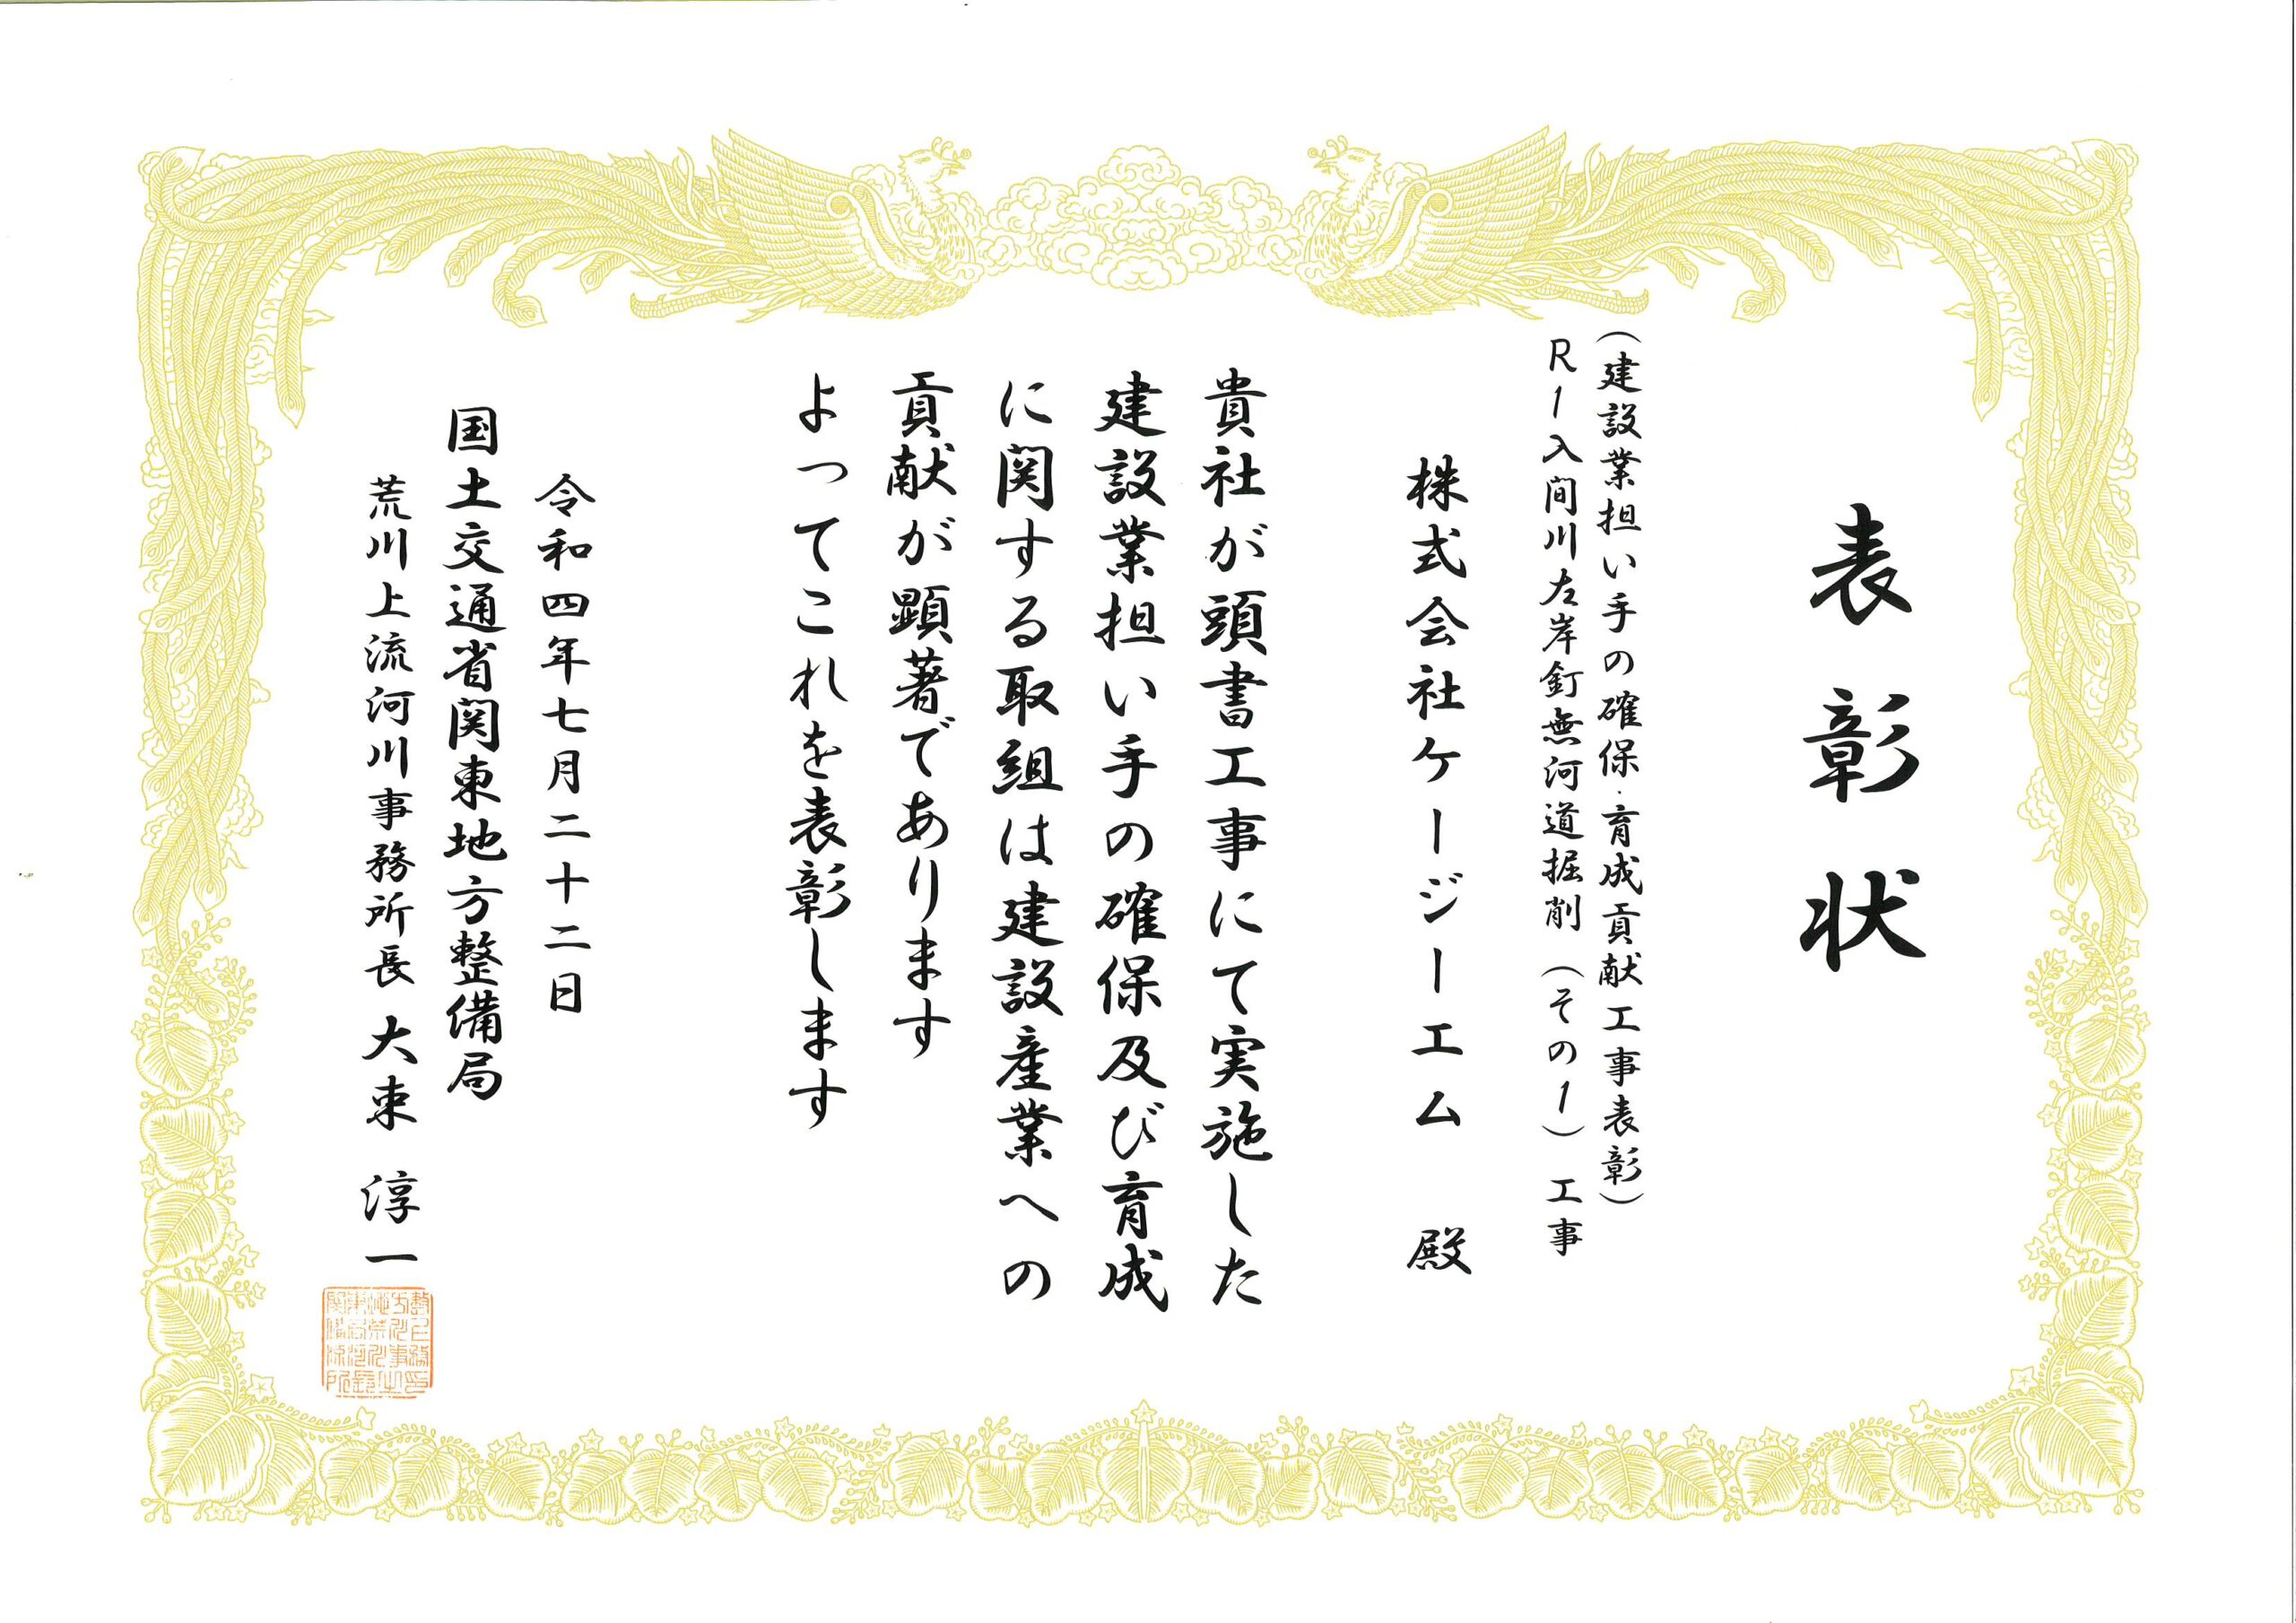 表彰状
（建設業担い手の確保・育成貢献工事表彰）
R1入間川左岸釘無河道掘削（その1）工事
株式会社ケージーエム　殿
貴社が頭書工事にて実施した
建設業担い手の確保及び育成
に関する取組は建設産業への
貢献が顕著であります
よってこれを表彰します
令和四年七月二十二日
国土交通省関東地方整備局
荒川上流河川事務所長　大束　淳一